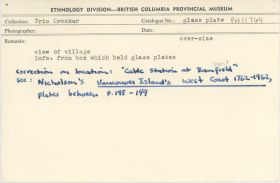 ETHNOLOGY DIVISION—BRITISH COLUMBIA PROVINCIAL MUSEUM
Collection: Trio Crocker Catalogue No.: glass plate PN 11764
Photographer: Date:
Remarks: over-size
view of village
info. from box which held glass plates
correction on location: "Cable Station at Bamfield"
see: Nicholson's Vancouver Island's West Coast 1762-1962,
plates between p.148-149